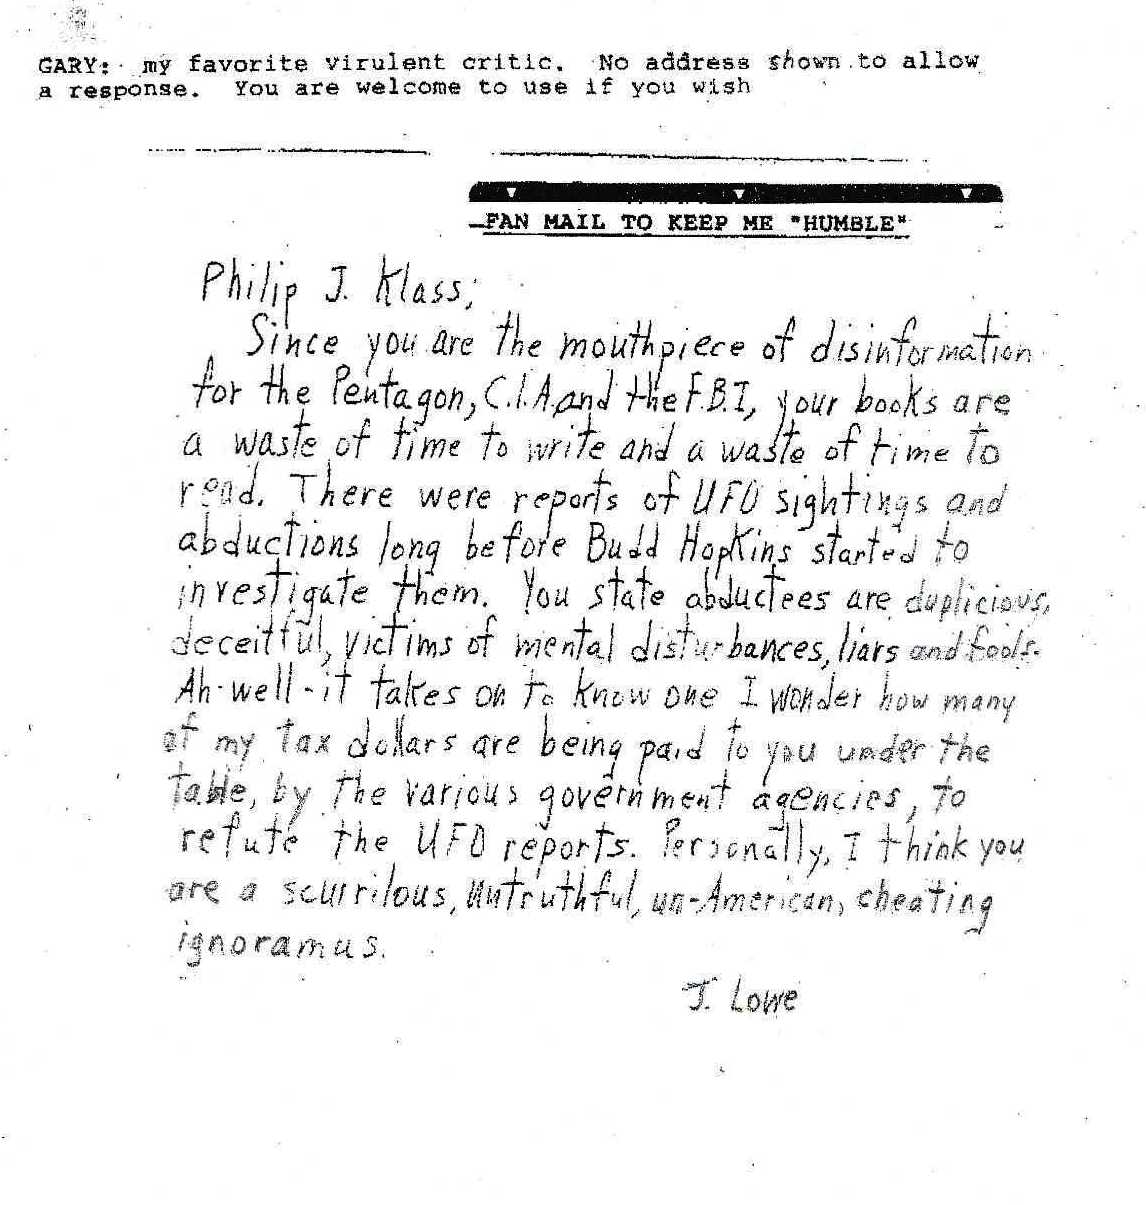 GARY: my favorite virulent critic. No address shown to allow
a response. You are welcome to use if you wish
FAN MAIL TO KEEP ME "HUMBLE"
Philip J. Klass;
Since you are the mouthpiece of disinformation
for the Pentagon, C.I.A. and the F.B.I, your books are
a waste of time to write and a waste of time to
read. There were reports of UFO sightings and
abductions long before Budd Hopkins started to
investigate them. You state abductees are duplicious,
deceitful, victims of mental disturbances, liars and fools.
Ah-well-it takes on to know one I wonder how many
of my tax dollars are being paid to you under the
table, by the various government agencies, to
refute the UFO reports. Personally, I think you
are a scurrilous, untruthful, un-American, cheating
ignoramus.
J. Lowe